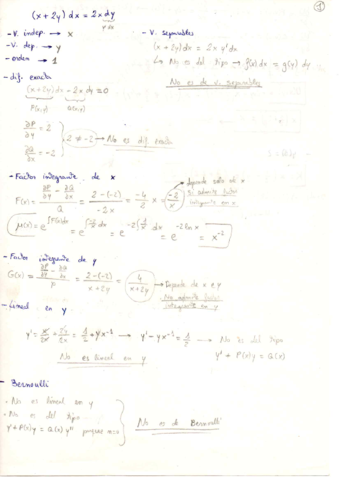 (x+2y) dx = 2x dy
1
- V. indep. → x
- V. dep. → y
- orden → 1
- V. separables
(x+2y)dx = 2x y'dx
↳ No es del tipo → f(x)dx = g(y) dy
No es de v. separables
- dif. exacta
(x+2y)dx - 2x dy = 0
P(x,y) Q(x,y)
∂P/∂y = 2
∂Q/∂x = -2
2 ≠ -2 → No es dif. exacta
- Factor integrante de x
F(x) = (∂P/∂y - ∂Q/∂x)/Q = (2-(-2))/(-2x) = -4/2 x = -2/x → depende solo de x
Si admite factor integrante en x
μ(x) = e^∫F(x)dx = e^∫-2/x dx = e^-2∫1/x dx = e^-2 ln x = x^-2
- Factor integrante de y
G(x) = (∂P/∂y - ∂Q/∂x)/P = (2-(-2))/(x+2y) = 4/(x+2y) → Depende de x e y
No admite factor integrante en y
- Lineal en y
y' = x/2x + 2y/2x = 1/2 + yx^-1 → y' - yx^-1 = 1/2 → No es del tipo
y' + P(x)y = Q(x)
No es lineal en y
- Bernoulli
- No es lineal en y
- No es del tipo
y' + P(x)y = Q(x) y^n porque n=0
No es de Bernoulli